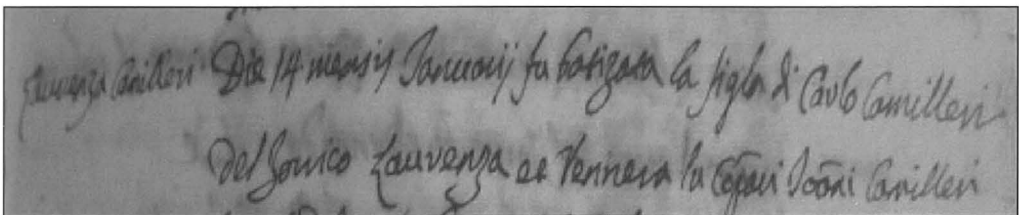 Laurenza Camilleri Die 14 mensis Januarij fu batizata la figla di Carlo Camilleri
Laurenza et Vennera la Joãni Camilleri